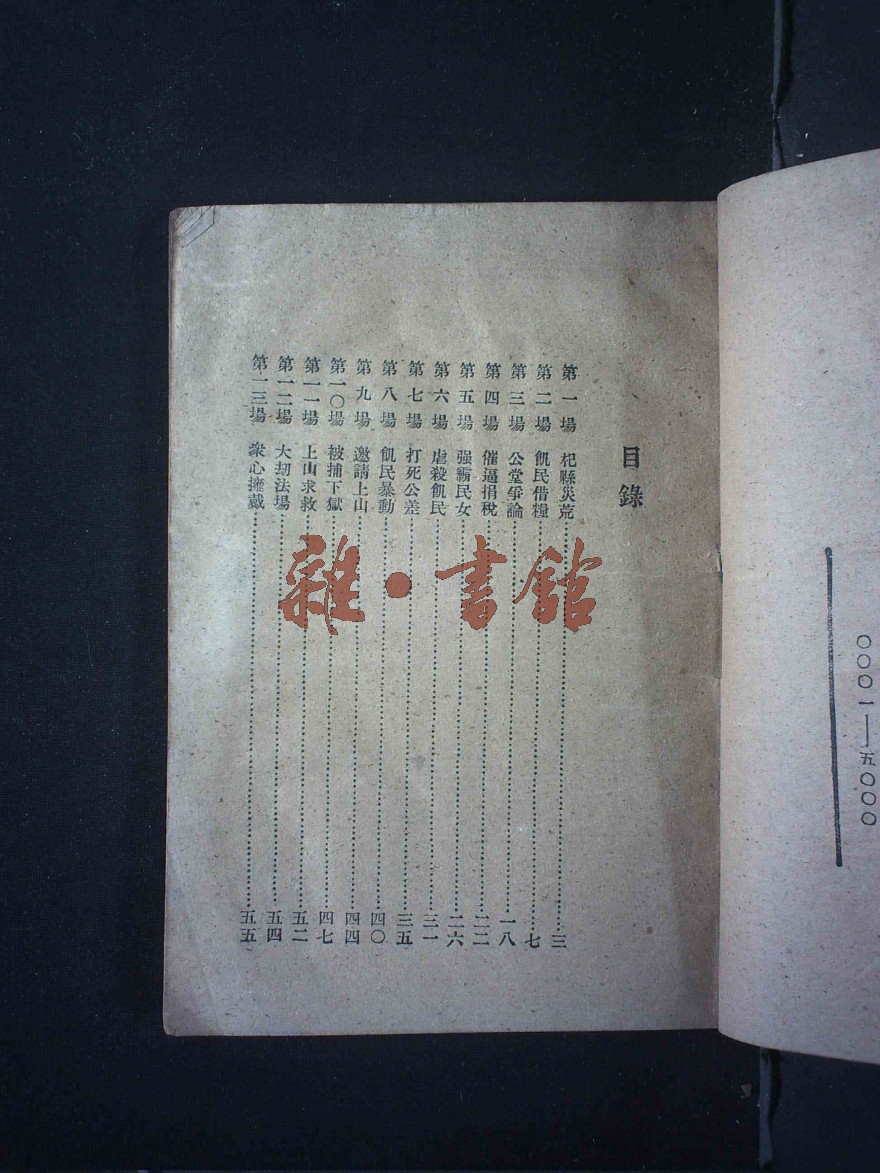 目錄
第一場 杞縣災荒 三
第二場 飢民借糧 七
第三場 公堂爭論 一八
第四場 催逼捐稅 二二
第五場 强霸民女 二六
第六場 虐殺飢民 三一
第七場 打死公差 三五
第八場 飢民暴動 四〇
第九場 邀請上山 四四
第一〇場 被捕下獄 四七
第一一場 上山求救 五二
第一二場 大刧法場 五四
第一三場 衆心擁戴 五五
雜·書館
〇〇〇一——五〇〇〇